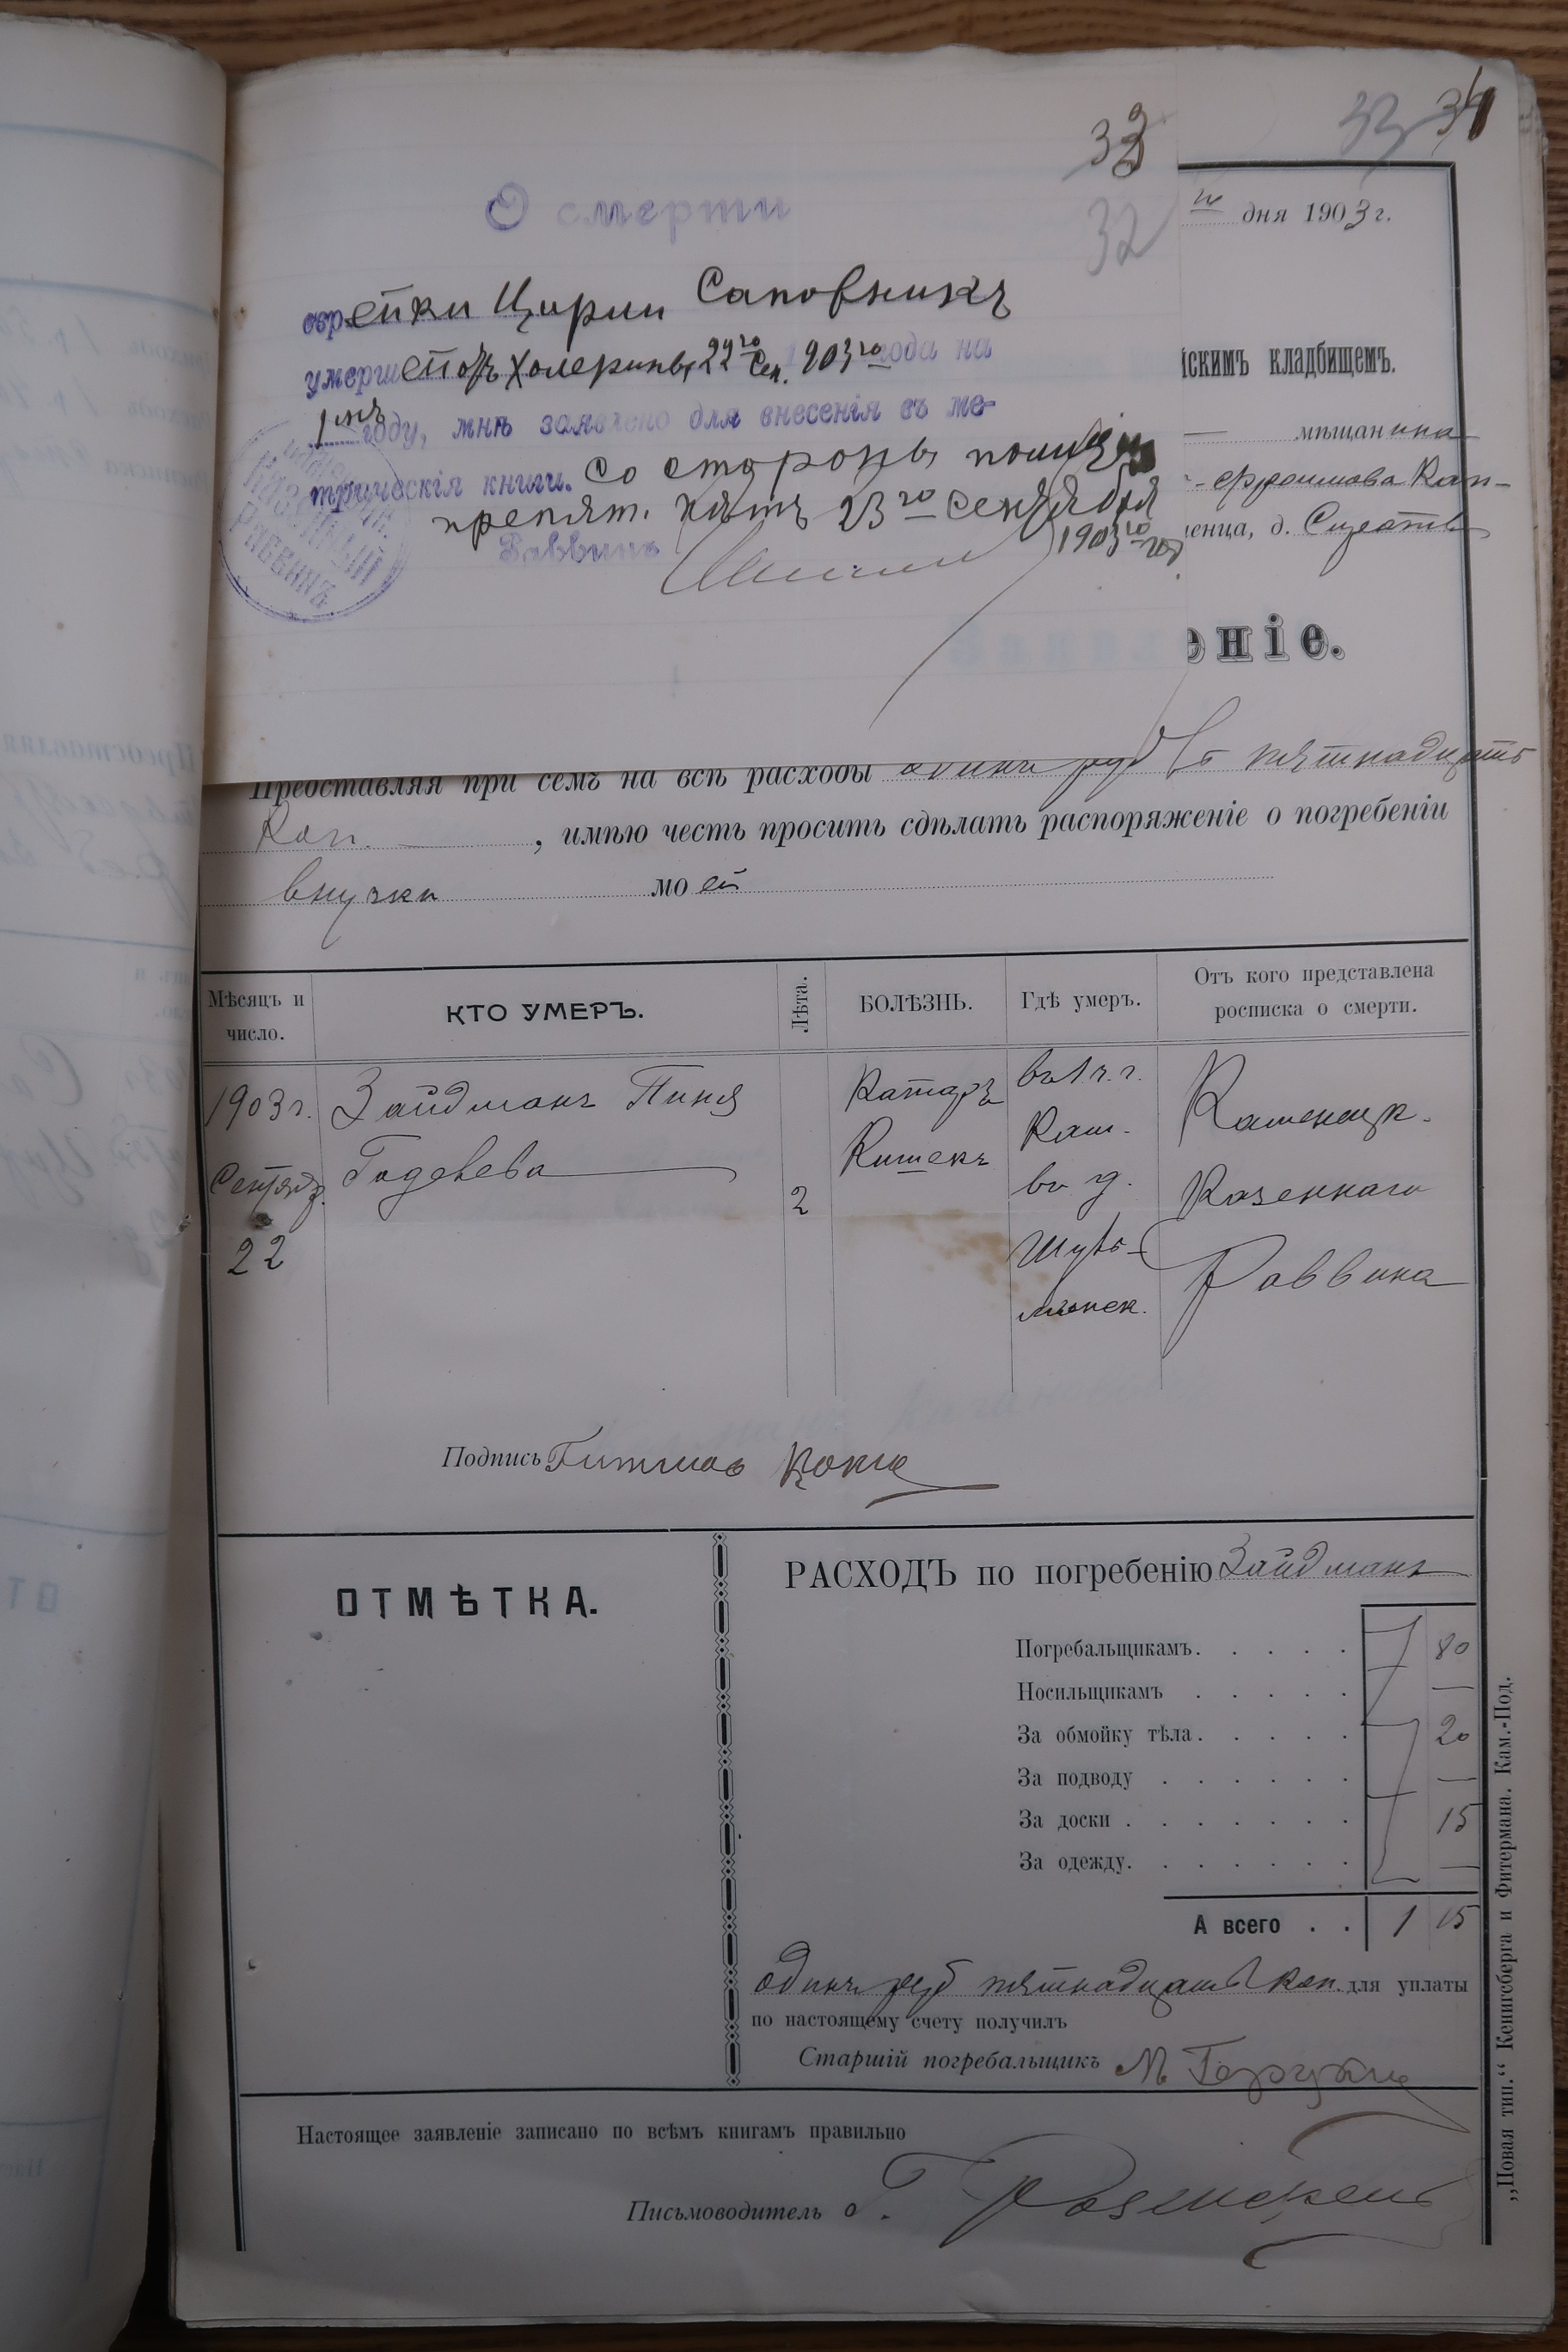 33
32 34
32
О смерти
дня 1903 г.
еврейки Цирли Саповникъ
умершей отъ Холерины 22го Сен. 1903го года на
1мъ году, мнѣ заявлено для внесенія въ ме-
трическія книги. Со стороны полиціи
препят. нѣтъ 23го сентября
1903го год
Раввинъ
КАЗЕННЫЙ
РАВВИНЪ
йскимъ кладбищемъ.
мѣщанина
Ефроимова Кап-
ленца, д.
еніе.
Представляя при семъ на всѣ расходы одинъ руб пятнадцать
Коп. , имѣю честь просить сдѣлать распоряженіе о погребеніи
внучки моей
Мѣсяцъ и число.
КТО УМЕРЪ.
Лѣта.
БОЛѢЗНЬ.
Гдѣ умеръ.
Отъ кого представлена росписка о смерти.
1903 г. Зайдманъ Пиня Катаръ въ 1 ч. г. Каменецк.
Сентяб. Годелева 2 Кишекъ Кам. Казеннаго
22 въ д. Раввина
Подпись
ОТМѢТКА.
РАСХОДЪ по погребенію Зайдманъ
Погребальщикамъ. 80
Носильщикамъ —
За обмойку тѣла. 20
За подводу —
За доски 15
За одежду. —
А всего 1 15
одинъ руб пятнадцать коп. для уплаты
по настоящему счету получилъ
Старшій погребальщикъ М
Настоящее заявленіе записано по всѣмъ книгамъ правильно
Письмоводитель
„Новая тип.“ Кенигсберга и Фитермана. Кам.-Под.